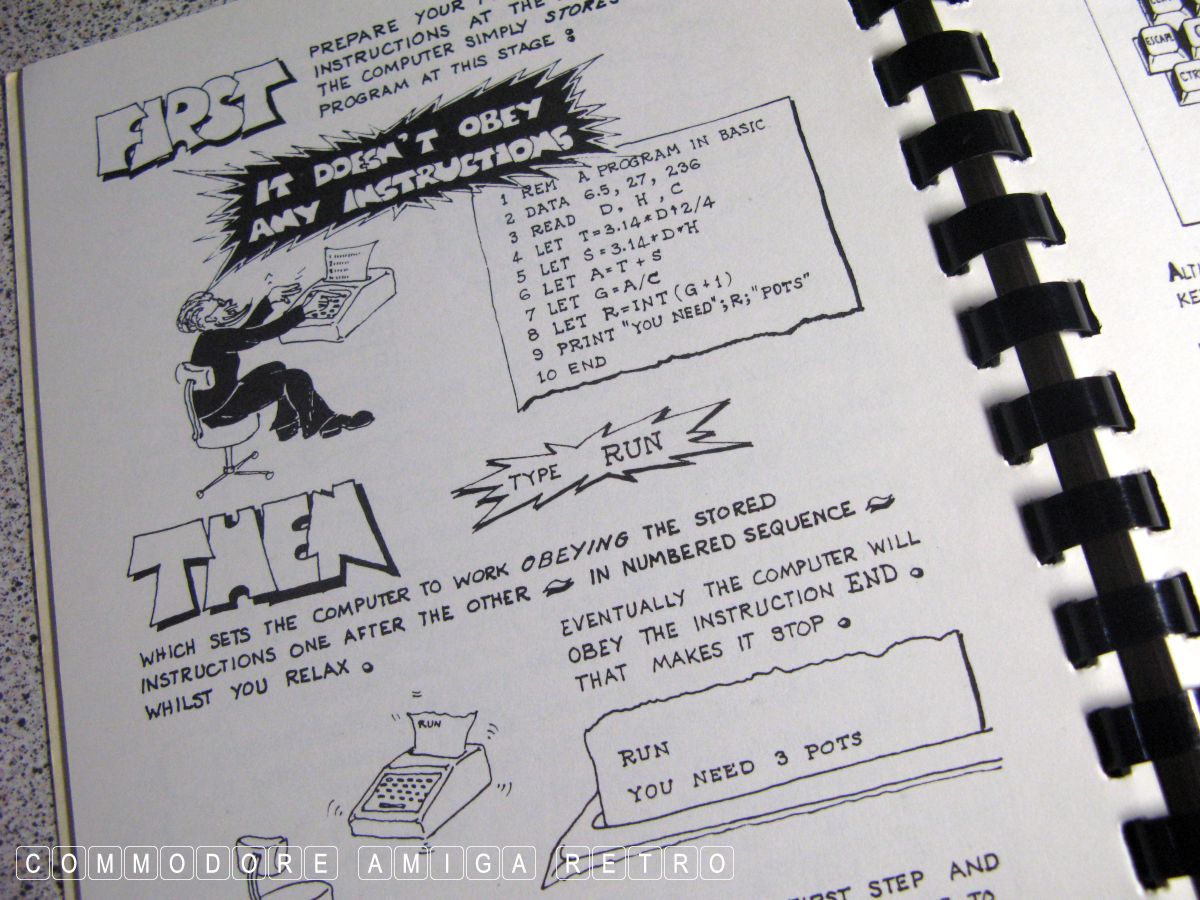 FIRST
PREPARE YOUR
INSTRUCTIONS AT THE
THE COMPUTER SIMPLY STORES
PROGRAM AT THIS STAGE :
IT DOESN'T OBEY
ANY INSTRUCTIONS
1 REM A PROGRAM IN BASIC
2 DATA 6.5, 27, 236
3 READ D, H, C
4 LET T=3.14*D↑2/4
5 LET S=3.14*D*H
6 LET A=T+S
7 LET G=A/C
8 LET R=INT(G+1)
9 PRINT "YOU NEED";R;"POTS"
10 END
TYPE RUN
THEN
WHICH SETS THE COMPUTER TO WORK OBEYING THE STORED
INSTRUCTIONS ONE AFTER THE OTHER IN NUMBERED SEQUENCE
WHILST YOU RELAX.
EVENTUALLY THE COMPUTER WILL
OBEY THE INSTRUCTION END.
THAT MAKES IT STOP.
RUN
RUN
YOU NEED 3 POTS
FIRST STEP AND
TO
ESCAPE
CTR
ALTI
KE
COMMODORE AMIGA RETRO